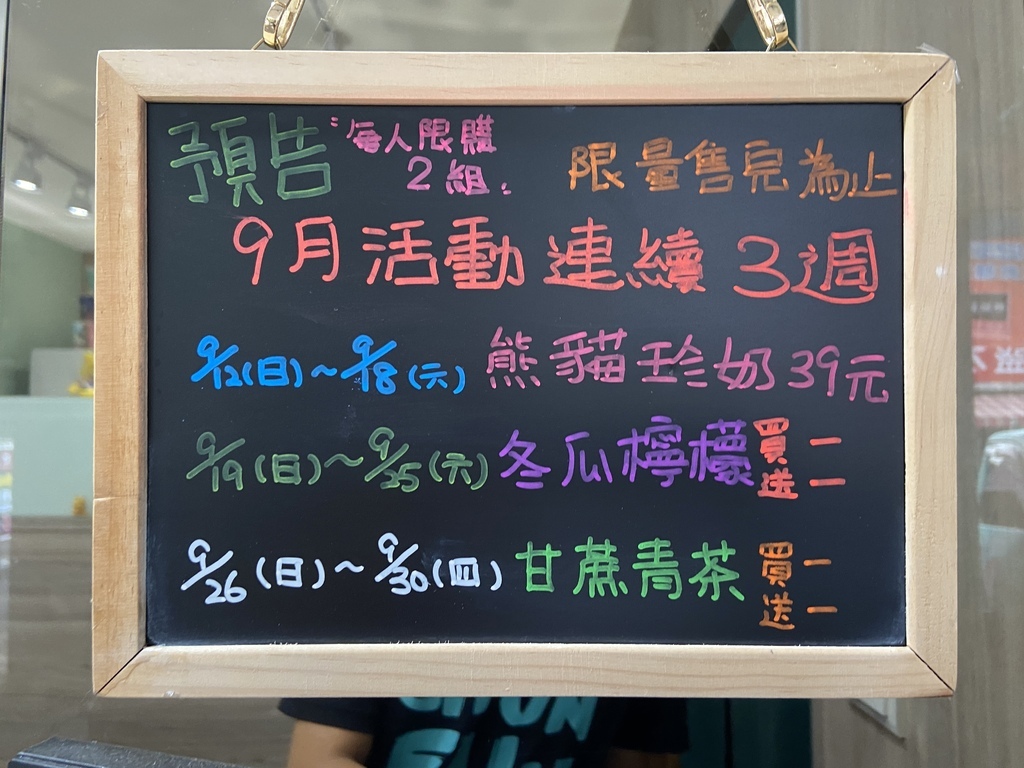 預告
每人限購
2組.
限量售完為止
9月活動連續3週
9/12(日)~9/18(六) 熊貓珍奶39元
9/19(日)~9/25(六) 冬瓜檸檬 買一送一
9/26(日)~9/30(四) 甘蔗青茶 買一送一